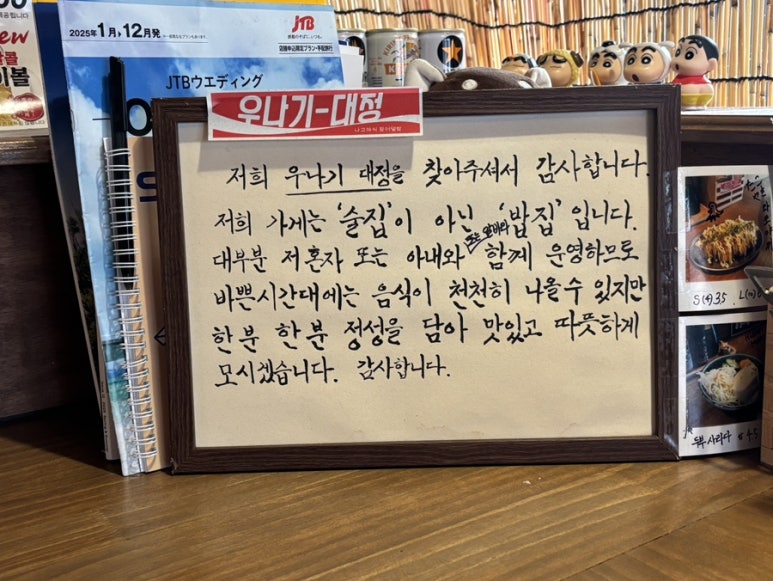 2025年1月▸12月発
JTB
感動のそばに、いつも。
店頭申込限定プラン・手配旅行
JTBウエディング
우나기-대정
나고야식 장어덮밥
저희 우나기 대정을 찾아주셔서 감사합니다.
저희 가게는 '술집'이 아닌 '밥집'입니다.
대부분 저 혼자 또는 아내와 함께 운영하므로
바쁜시간대에는 음식이 천천히 나올 수 있지만
한 분 한 분 정성을 담아 맛있고 따뜻하게
모시겠습니다. 감사합니다.
S(4)3.5 . L(
두부사라다 ₩4.5